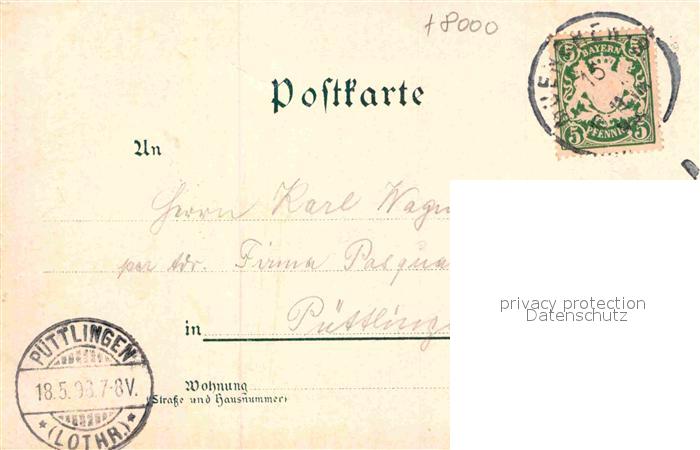 +8000
BAYERN
15
5 PFENNIG 5
Postkarte
An
Herrn Karl Wagn
per Adr. Firma Pasqua
in Püttlinge
Wohnung
(Straße und Hausnummer)
PÜTTLINGEN
18.5.98.7-8V.
(LOTHR.)
privacy protection
Datenschutz